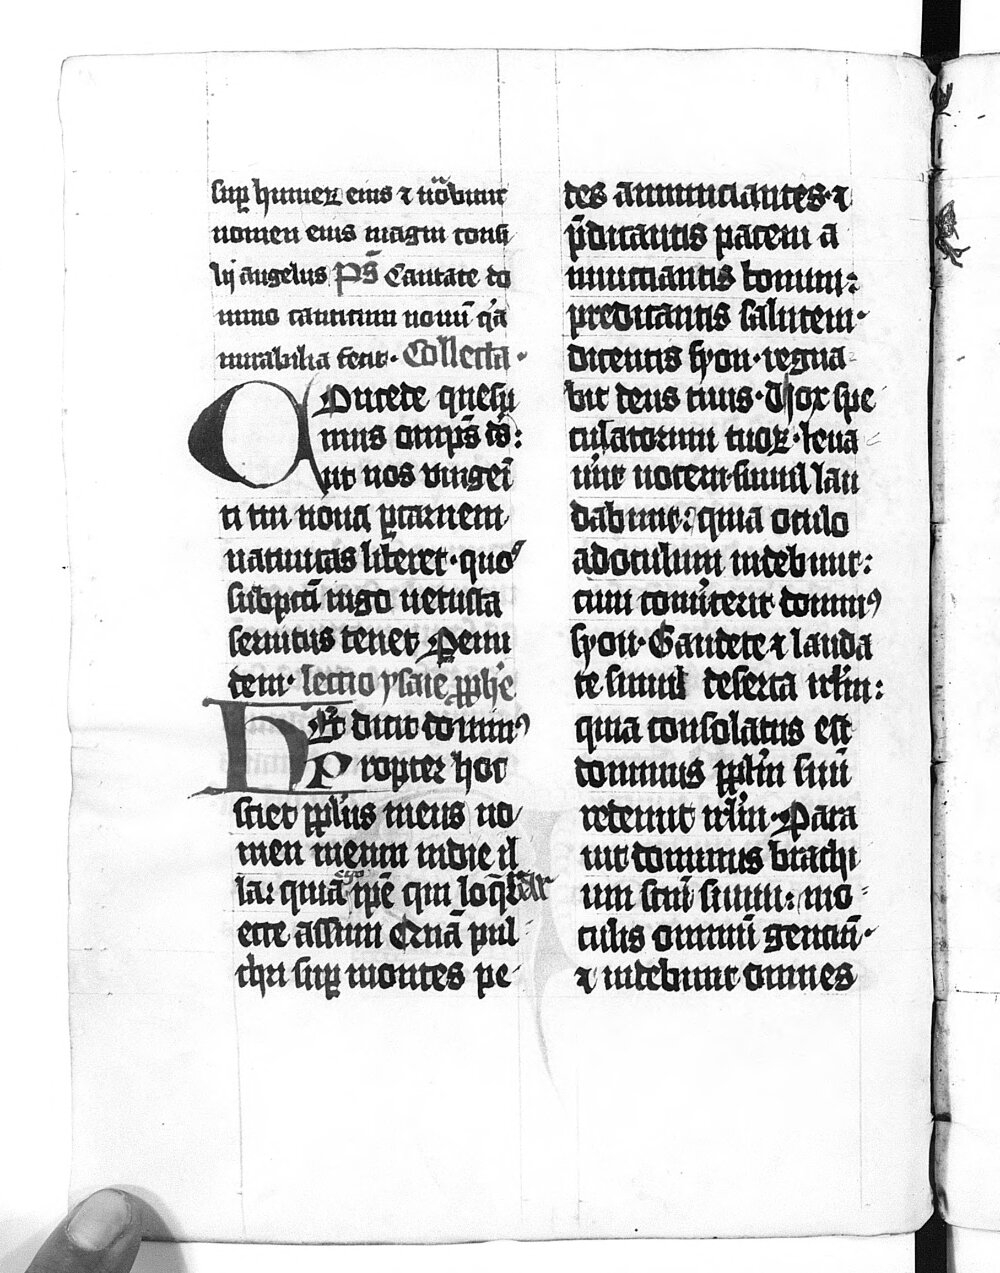 sup humeꝝ eius ⁊ uo᷑bitur
nomen eius magni consi
lij angelus Ps̄ Cantate do
mino canticum nouū q̓a
mirabilia fecit· Collecta·
Concede quesu
mus om̄ps ds̄:
ut nos vnigeī
ti tui noua ꝑ carnem
natiuitas liberet· quos
sub pct̄i iugo uetusta
seruitus tenet Per eun
dem· lectio ysaie ꝓphē
Hec dicit dominꝰ
Propter hoc
sciet ppl̓us meus no
men meum in die il
la: quia ego ip̄e qui loq̄bar
ecce assum Quā pul
chri suꝑ montes pe
des annunciantes· ⁊
p̄dicantis pacem a
nnunciantis bonum:
predicantis salutem·
dicentis syon· regna
bit deus tuus· Vox spe
culatorum tuoꝝ· leua
uer̄t uocem· simul lau
dabunt: quia oculo
ad oculum uidebunt:
cum conu̓terit dominꝰ
syon· Gaudete ⁊ lauda
te simul deserta irl̓m:
quia consolatus est
dominus ppl̓m suū
redemit irl̓m· Para
uit dominus brachi
um scm̄ suum: in o
culis omniū genciū·
⁊ uidebunt omnes